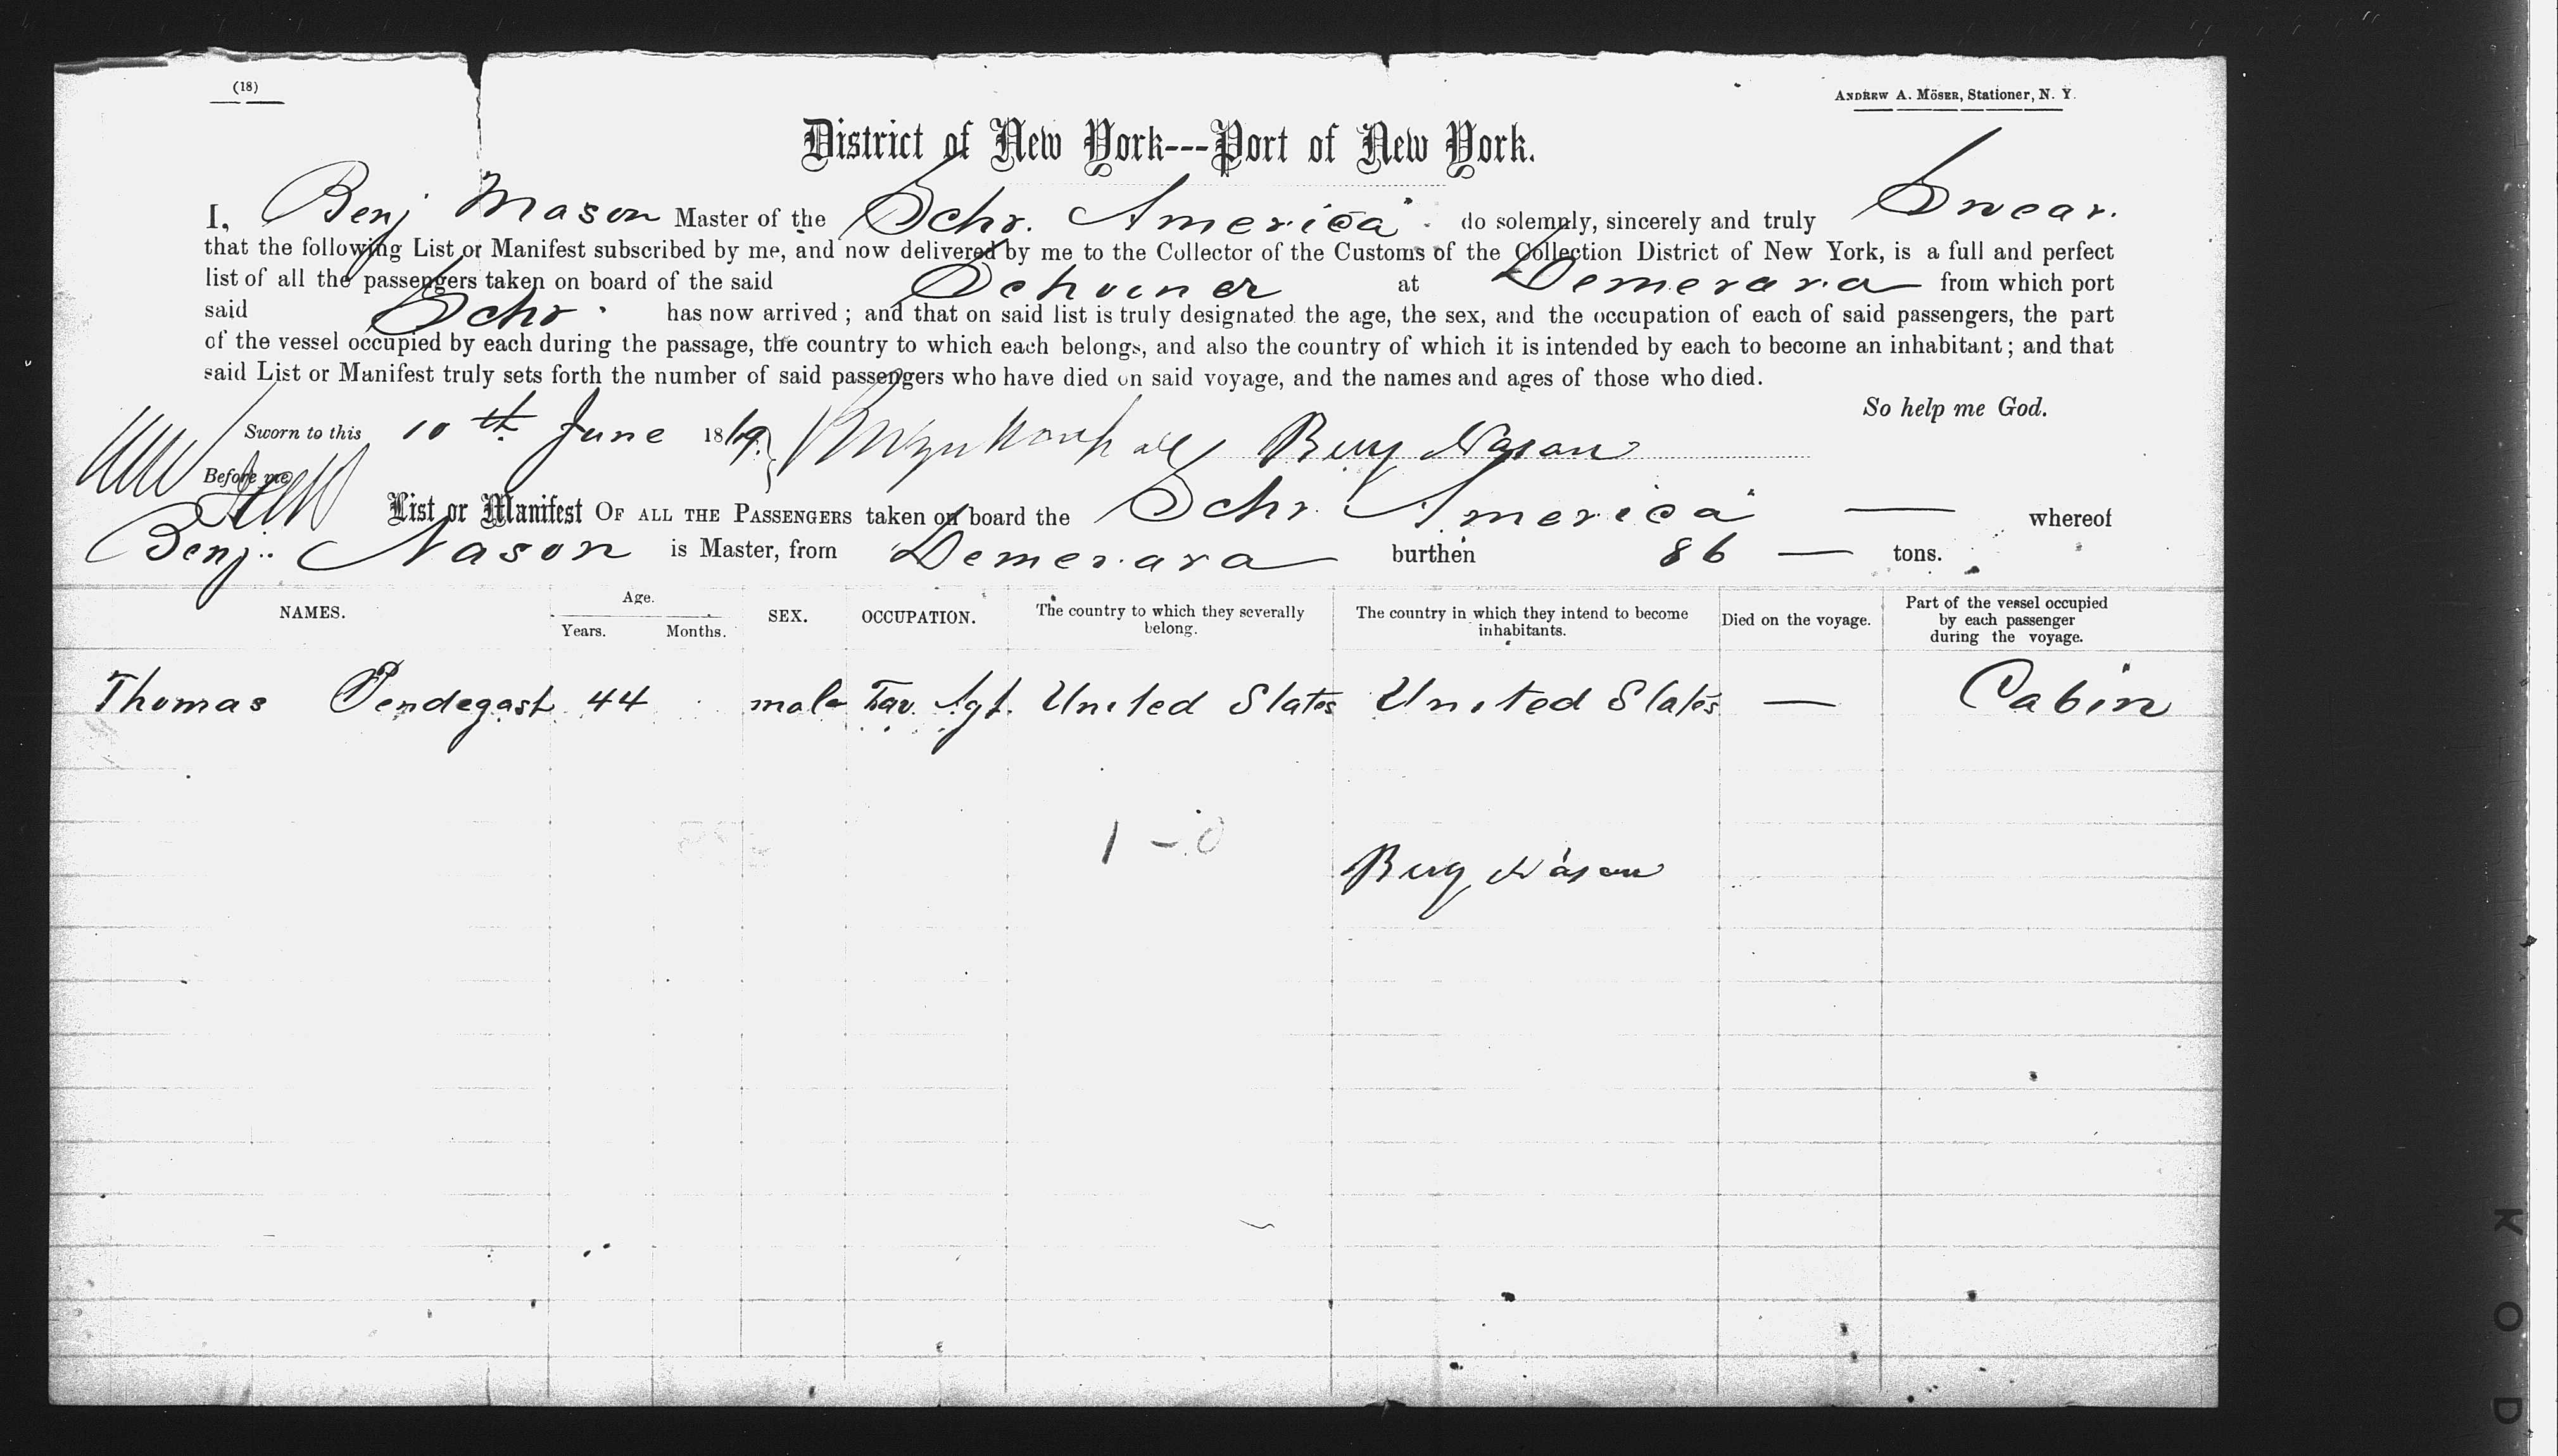 (18)
Andrew A. Möser, Stationer, N. Y.
District of New York---Port of New York.
I, Benj Mason Master of the Schr. America do solemnly, sincerely and truly Swear.
that the following List or Manifest subscribed by me, and now delivered by me to the Collector of the Customs of the Collection District of New York, is a full and perfect
list of all the passengers taken on board of the said Schooner at Demerara from which port
said Schr. has now arrived; and that on said list is truly designated the age, the sex, and the occupation of each of said passengers, the part
of the vessel occupied by each during the passage, the country to which each belongs, and also the country of which it is intended by each to become an inhabitant; and that
said List or Manifest truly sets forth the number of said passengers who have died on said voyage, and the names and ages of those who died.
So help me God.
Sworn to this 10th June 1869. Benj Nason
Before me
List or Manifest OF ALL THE PASSENGERS taken on board the Schr. America — whereof
Benj. Nason is Master, from Demerara burthen 86 — tons.
NAMES. Age. Years. Months. SEX. OCCUPATION. The country to which they severally belong. The country in which they intend to become inhabitants. Died on the voyage. Part of the vessel occupied by each passenger during the voyage.
Thomas Pendegast 44 male Tav. Agt. United States United States — Cabin
1 - 0
Benj Nason
KOD